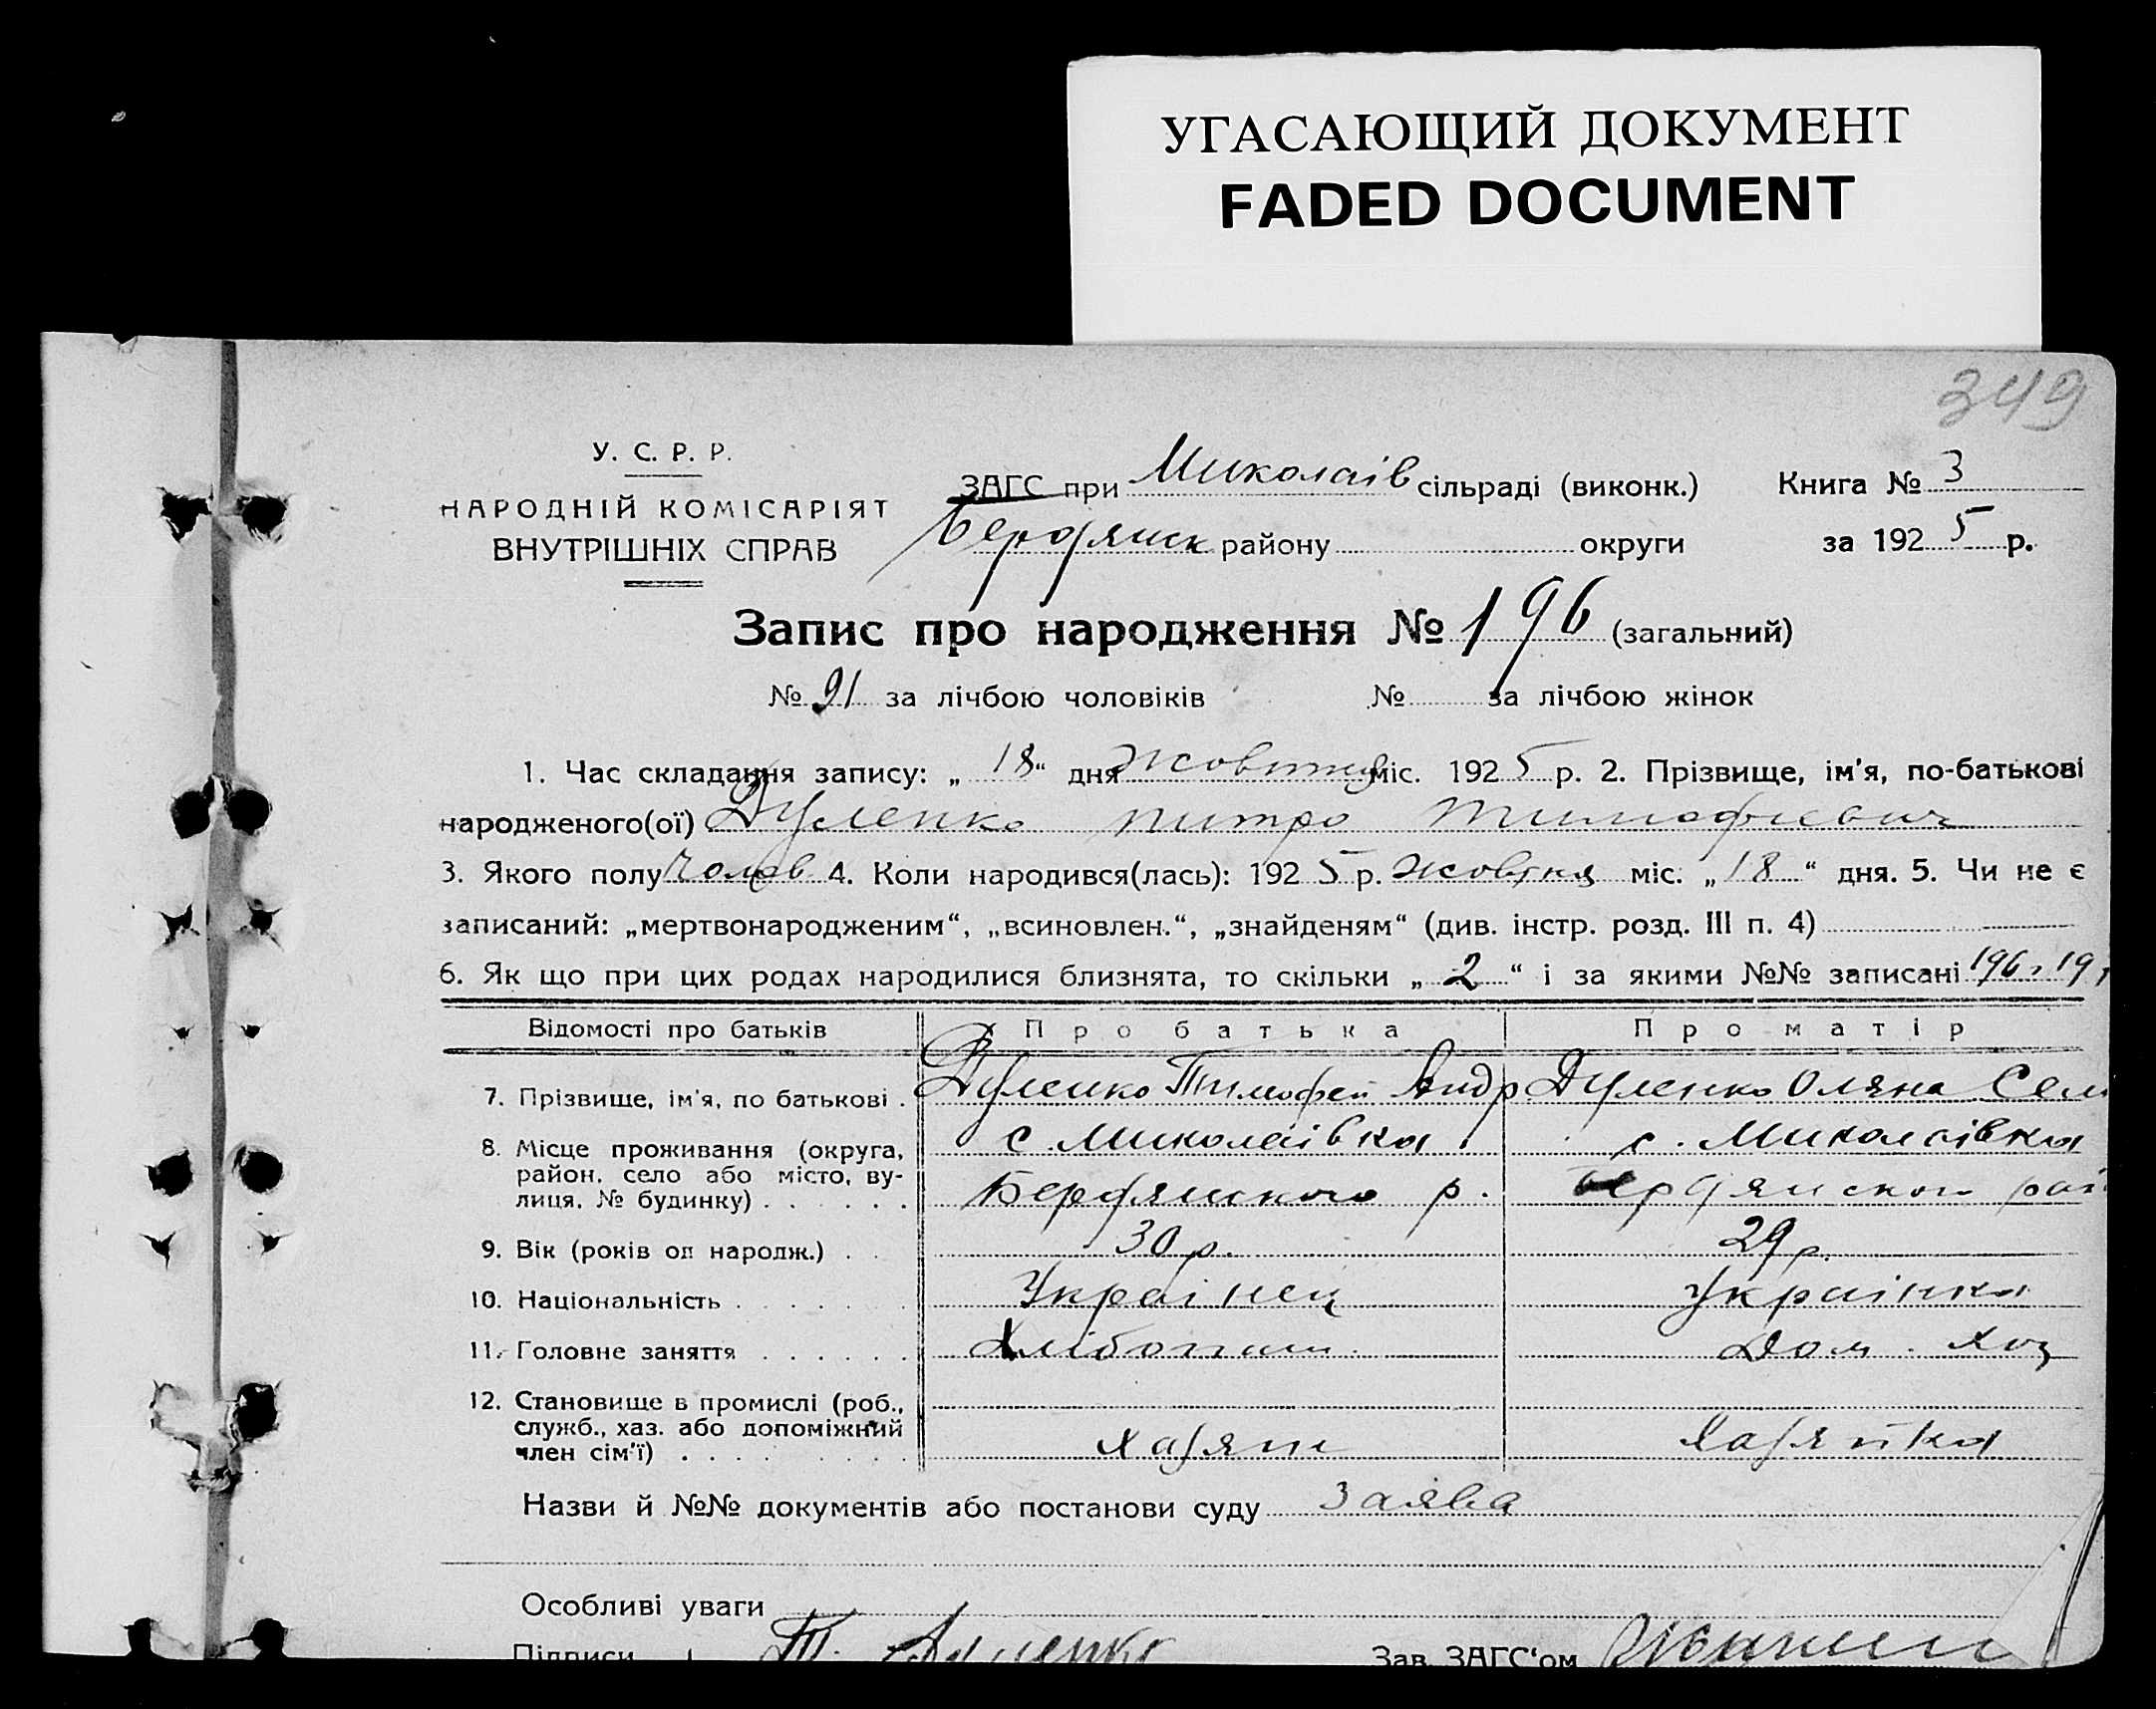 УГАСАЮЩИЙ ДОКУМЕНТ
FADED DOCUMENT
349
У. С. Р. Р.
НАРОДНІЙ КОМІСАРІЯТ
ВНУТРІШНІХ СПРАВ
ЗАГС при Миколаів сільраді (виконк.) Книга № 3
Бердянск району округи за 1925 р.
Запис про народження № 196 (загальний)
№ 91 за лічбою чоловіків № за лічбою жінок
1. Час складання запису: „18“ дня жовтня міс. 1925 р. 2. Прізвище, ім'я, по-батькові
народженого(ої) Дуленко Питро Тимофиевич
3. Якого полу Чолов 4. Коли народився(лась): 1925 р. жовтня міс. „18“ дня. 5. Чи не є
записаний: „мертвонародженим“, „всиновлен.“, „знайденям“ (див. інстр. розд. III п. 4)
6. Як що при цих родах народилися близнята, то скільки „2“ і за якими №№ записані 196
Відомості про батьків Про батька Про матір
7. Прізвище, ім'я, по батькові . Дуленко Тимофей Андр Дуленко Оляна Сем
8. Місце проживання (округа, с. Миколаівка с. Миколаівка
район, село або місто, ву-
лиця, № будинку) . . . . . . Бердянского р. Бердянского рай
9. Вік (років од народж.) . . 30 р. 29 р.
10. Національність . . . . . . Украінец Украінка
11. Головне заняття . . . . . . Хлібопаш Дом. хоз
12. Становище в промислі (роб.,
служб., хаз. або допоміжний
член сім'ї) . . . . . . . . .
Назви й №№ документів або постанови суду Заява
Особливі уваги
Підписи Т. Дуленко Зав. ЗАГС'ом